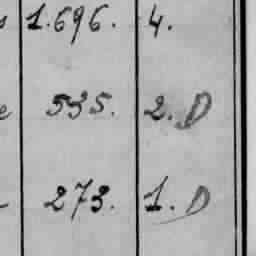 1.696. 4.
535. 2. D
273. 1. D